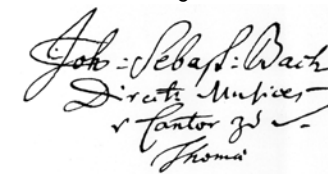 Joh: Sebast: Bach
Direct. Musices
v Cantor zu
Thomä